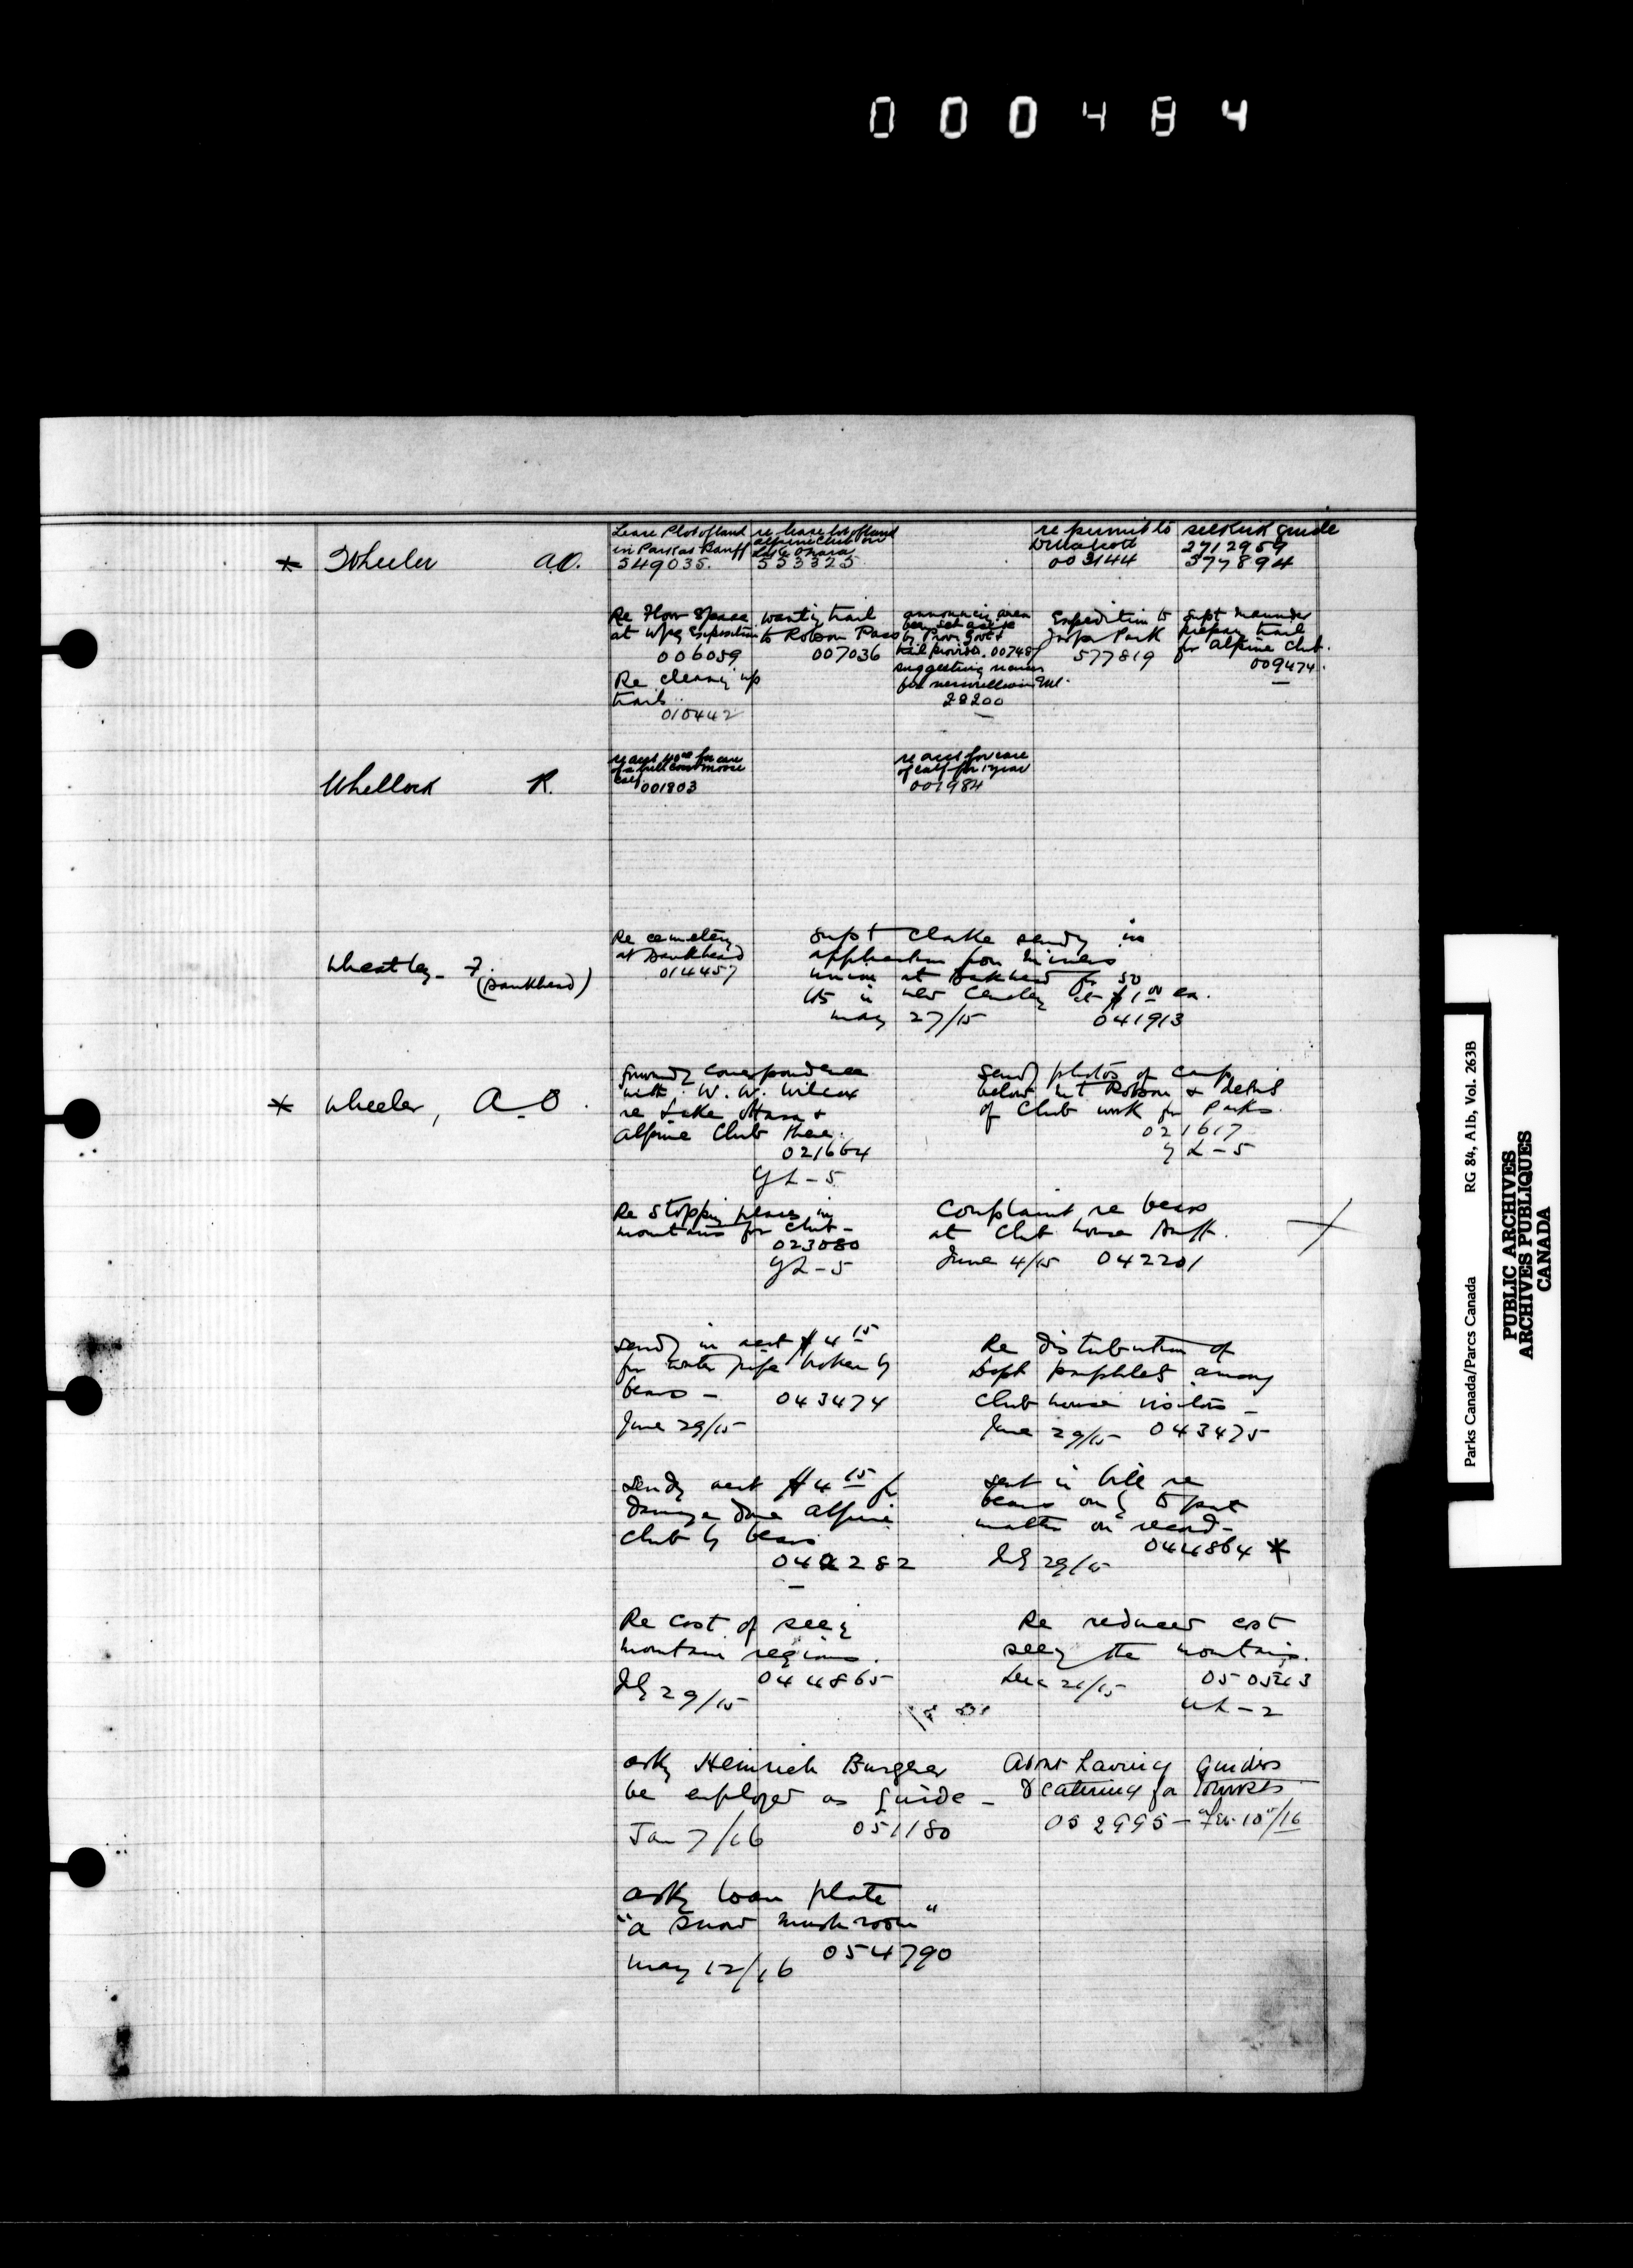 000484
* Wheeler A.O.
Lease Plot of land
in Park at Banff
549035.
re lease lot of land
alpine club on
Lake Ohara
553325
re permit to
003144
selkirk guide
2712959
577894
Re Floor Space
at Wpg Exposition
006059
Re cleaning up
trails
010442
wantig trail
to Robson Pass
007036
announcing area
been set aside
by Prov. Govt &
trail provided. 007487
suggesting names
for
28200
Expedition to
Jasper Park
577819
Supt Maunder
prepare trail
for Alpine Club.
009474.
Whellock R.
001803
re acct for care
of calf for 1 year
001984
Wheatley - F.
(Bankhead)
Re cemetery
at Bankhead
014457
Supt Clarke sendg in
application from Miners
Union at Bankhead for 50
lots in new Cemetery at $1.00 ea.
May 27/15 041913
* Wheeler, A-O.
forwardg correspondence
with W. W. Wilcox
re Lake Ohara &
Alpine Club there.
021664
YL-5
Sendg photos of camp
below Mt Robson & detail
of Club work for Parks.
021617
YL-5
Re stopping places in
mountains for Club -
023080
YL-5
Complaint re bears
at Club house Banff.
June 4/15 042201
sendg in acct $4.15
for water pipe broken by
bears - 043474
June 29/15
Re distribution of
Dept pamphlets among
Club house visitors -
June 29/15 043475
Sendg acct $4.15 for
damage done Alpine
Club by bears
044282
sent in bill re
bears only to put
matter on record -
044864 *
July 29/15
Re cost of seeg
mountain regions.
July 29/15 044865
Re reduced cost
seeg the mountains.
Dec 21/15 050543
UL-2
askg Heinrich Burgener
be employed as guide -
Jan 7/16 051180
About having Guides
& catering for Tourists
052995 - Feb. 10"/16
askg loan plate
"a snow mushroom"
May 12/16 054790
Parks Canada/Parcs Canada RG 84, A1b, Vol. 263B
PUBLIC ARCHIVES
ARCHIVES PUBLIQUES
CANADA